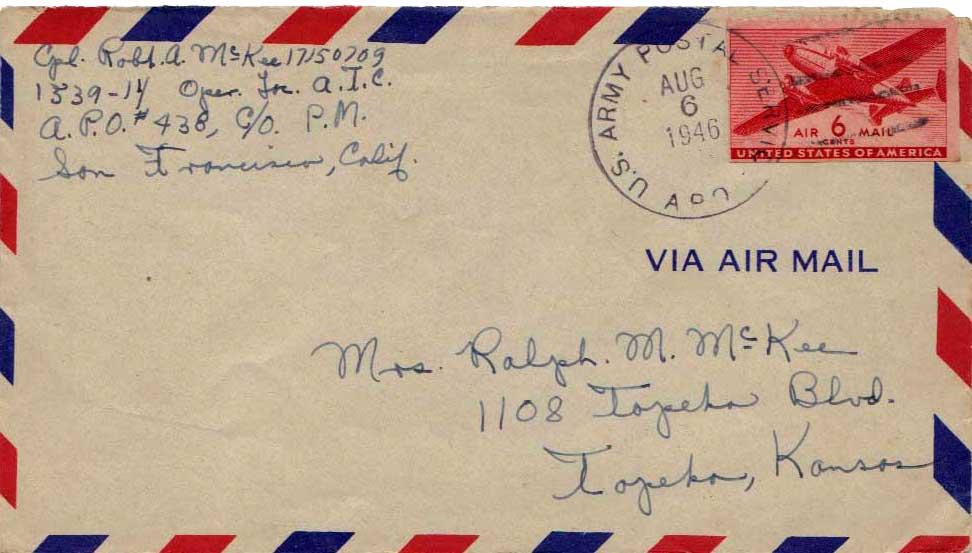 Cpl. Robt. A. McKee 17150709
1539-14 Oper. Loc. A.T.C.
A.P.O. # 438, C/O. P.M.
San Francisco, Calif.
U.S. ARMY POSTAL SERVICE
AUG
6
1946
APO
AIR 6 MAIL
CENTS
UNITED STATES OF AMERICA
VIA AIR MAIL
Mrs. Ralph. M. McKee
1108 Topeka Blvd.
Topeka, Kansas